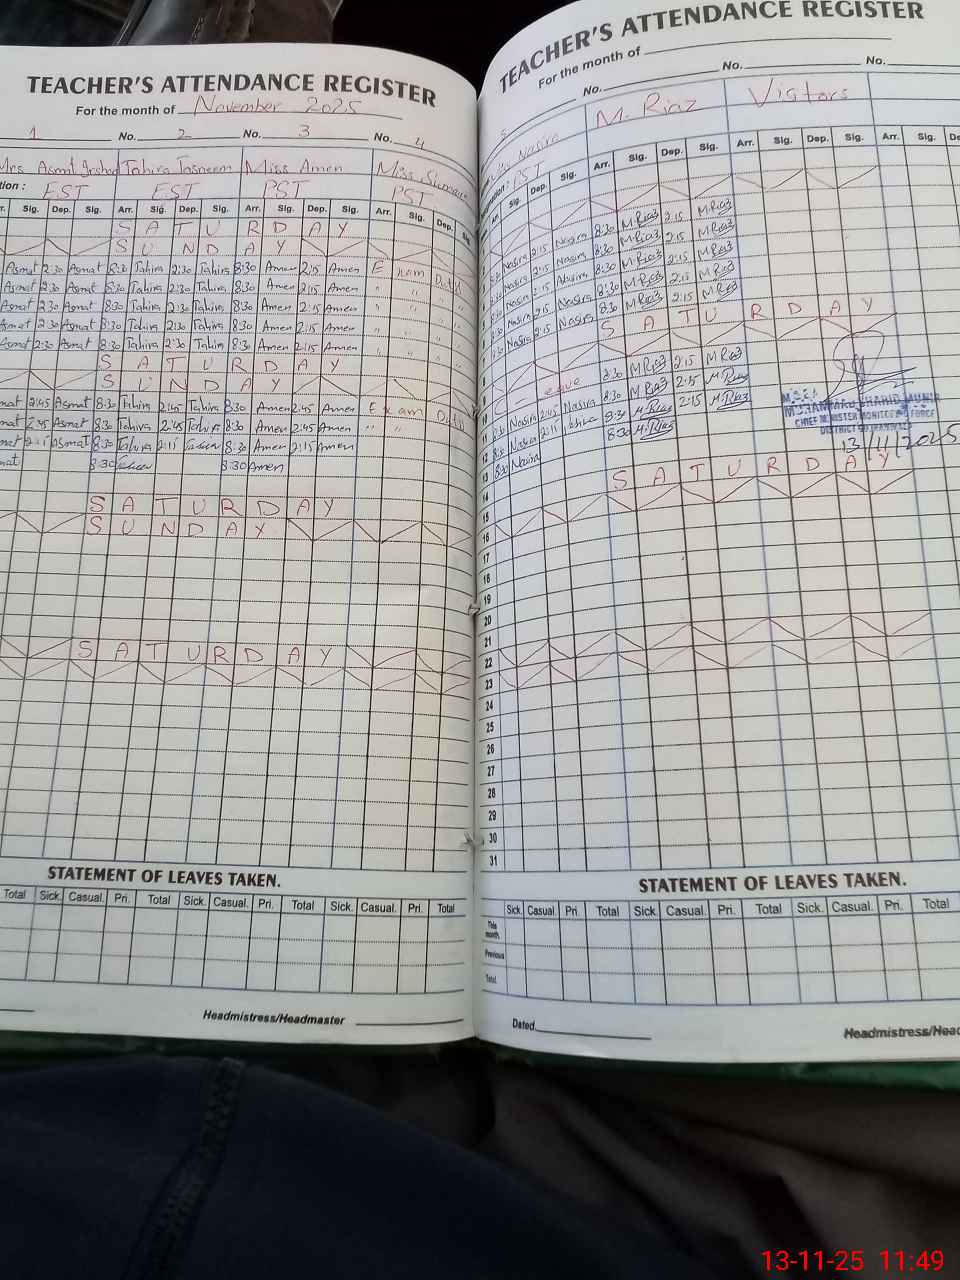 TEACHER'S ATTENDANCE REGISTER
For the month of November 2025
1 No. 2 No. 3 No. 4
Mrs Asmat Irshad Tahira Tasneem Miss Amen Miss Sumaira
EST EST PST PST
Sig. Dep. Sig. Arr. Sig. Dep. Sig. Arr. Sig. Dep. Sig. Arr. Sig. Dep. Sig.
S A T U R D A Y
S U N D A Y
Asmat 2:30 Asmat 8:30 Tahira 2:30 Tahira 8:30 Amen 2:15 Amen Exam Duty
Asmat 2:30 Asmat 8:30 Tahira 2:30 Tahira 8:30 Amen 2:15 Amen " " "
Asmat 2:30 Asmat 8:30 Tahira 2:30 Tahira 8:30 Amen 2:15 Amen " " "
Asmat 2:30 Asmat 8:30 Tahira 2:30 Tahira 8:30 Amen 2:15 Amen " " "
Asmat 2:30 Asmat 8:30 Tahira 2:30 Tahira 8:30 Amen 2:15 Amen " " "
S A T U R D A Y
S U N D A Y
mat 2:45 Asmat 8:30 Tahira 2:45 Tahira 8:30 Amen 2:45 Amen Exam Duty
mat 2:45 Asmat 8:30 Tahira 2:45 Tahira 8:30 Amen 2:45 Amen " " "
mat 2:15 Asmat 8:30 Tahira 2:15 8:30 Amen 2:15 Amen
mat 8:30 8:30 Amen
S A T U R D A Y
S U N D A Y
S A T U R D A Y
STATEMENT OF LEAVES TAKEN.
Total Sick. Casual. Pri. Total Sick. Casual. Pri. Total Sick. Casual. Pri. Total
Headmistress/Headmaster
TEACHER'S ATTENDANCE REGISTER
For the month of
No. No. No.
5 Nasira M. Riaz Vistors
PST
Arr. Sig. Dep. Sig. Arr. Sig. Dep. Sig. Arr. Sig. Dep. Sig. Arr. Sig.
Nasira 2:15 Nasira 8:30 M Riaz 2:15 M Riaz
Nasira 2:15 Nasira 8:30 M Riaz 2:15 M Riaz
Nasira 2:15 Nasira 8:30 M Riaz 2:15 M Riaz
Nasira 2:15 Nasira 8:30 M Riaz 2:15 M Riaz
Nasira 2:15 Nasira 8:30 M Riaz 2:15 M Riaz
S A T U R D A Y
8
9
10 eave 8:30 M Riaz 2:15 M Riaz
11 8:30 Nasira 2:45 Nasira 8:30 M Riaz 2:15 M Riaz
12 8:30 Nasira 2:15 8:30 M Riaz 2:15 M Riaz
13 8:30 Nasira 8:30 M Riaz
CHIEF MINISTER MONITORING FORCE
DISTRICT
13/11/2025
14
15 S A T U R D A Y
16
17
18
19
20
21
22
23
24
25
26
27
28
29
30
31
STATEMENT OF LEAVES TAKEN.
Sick. Casual. Pri. Total Sick. Casual. Pri. Total Sick. Casual. Pri. Total
This month
Previous
Total
Dated
Headmistress/Hea
13-11-25 11:49